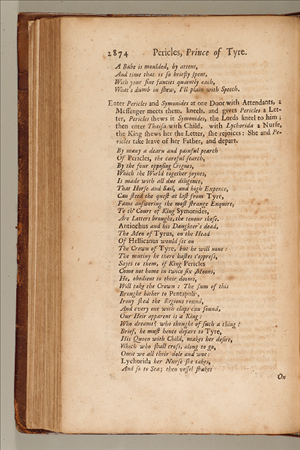 2874 Pericles, Prince of Tyre.
A Babe is moulded, by attent,
And time that is so briefly spent,
With your fine fancies quaintly each,
What's dumb in shew, I'll plain with Speech.
Enter Pericles and Symonides at one Door with Attendants, a
Messenger meets them, kneels, and gives Pericles a Let-
ter, Pericles shews it Symonides, the Lords kneel to him;
then enter Thaisa with Child, with Lychorida a Nurse,
the King shews her the Letter, she rejoices: She and Pe-
ricles take leave of her Father, and depart.
By many a dearn and painful pearch
Of Pericles, the careful search,
By the four opposing Crignes,
Which the World together joynes,
Is made with all due diligence,
That Horse and Sail, and high Expence,
Can steed the quest at last from Tyre,
Fame answering the most strange Enquire,
To th' Court of King Symonides,
Are Letters brought, the tenour these.
Antiochus and his Daughter's dead,
The Men of Tyrus, on the Head
Of Hellicanus would set on
The Crown of Tyre, but he will none:
The mutiny he there hastes t'oppress,
Sayes to them, if King Pericles
Come not home in twice six Moons,
He, obedient to their dooms,
Will take the Crown: The sum of this
Brought hither to Pentapolis,
Irony shed the Regions round,
And every one with claps can sound,
Our Heir apparent is a King:
Who dreamt? who thought of such a thing?
Brief, he must hence depart to Tyre,
His Queen with Child, makes her desire,
Which who shall cross, along to go,
Omit we all their dole and woe:
Lychorida her Nurse she takes,
And so to Sea; then vessel shakes
On